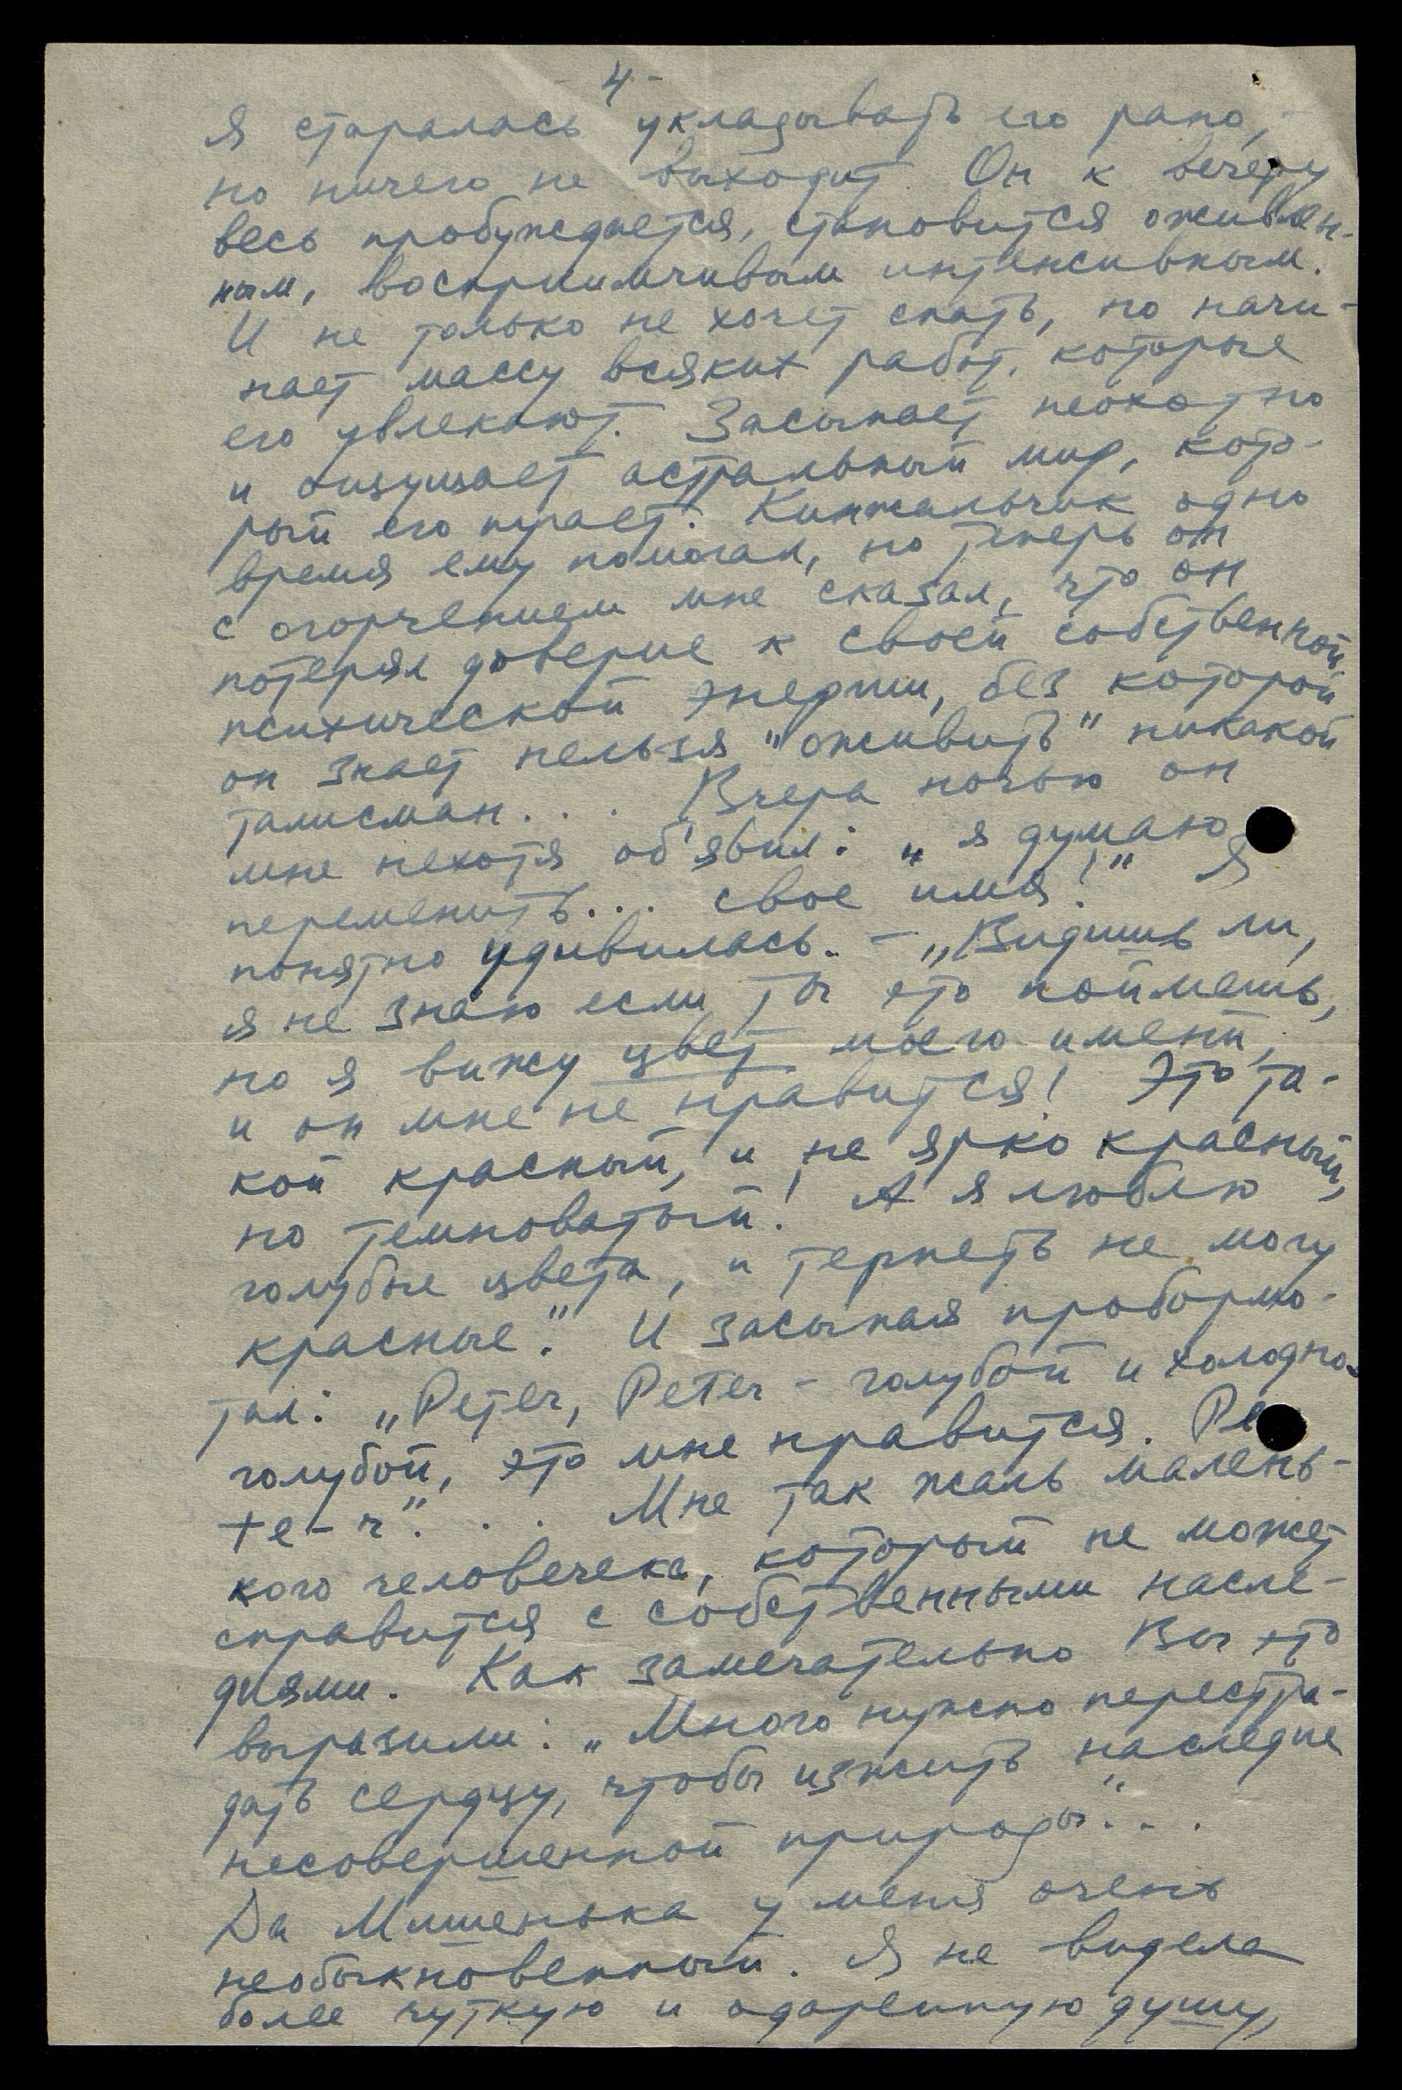 - 4 -
Я старалась укладывать его рано, -
но ничего не выходит. Он к вечеру
весь пробуждается, становится оживлен-
ным, восприимчивым интенсивным.
И не только не хочет спать, но начи-
нает массу всяких работ, которые
его увлекают. Засыпает неохотно
и ощущает астральный мир, кото-
рый его пугает. Кинжальчик одно
время ему помогал, но теперь он
с огорчением мне сказал, что он
потерял доверие к своей собственной
психической энергии, без которой
он знает нельзя "оживить" никакой
талисман... Вчера ночью он
мне нехотя об'явил: „я думаю
переменить... свое имя!" Я
понятно удивилась. - „Видишь ли,
я не знаю если ты это поймешь,
но я вижу цвет моего имени,
и он мне не нравится! Это та-
кой красный, и не ярко красный,
но темноватый! А я люблю
голубые цвета, и терпеть не могу
красные." И засыпая пробормо-
тал: „Peter, Peter - голубой и холодно-
голубой, это мне нравится. Pe-
te-r"... Мне так жаль малень-
кого человечека, который не может
справится с собственными насле-
диями. Как замечательно Вы это
выразили: „Много нужно перестра-
дать сердцу, чтобы изжить наследие
несовершенной природы"...
Да Мишенька у меня очень
необыкновенный. Я не видела
более чуткую и одаренную душу,